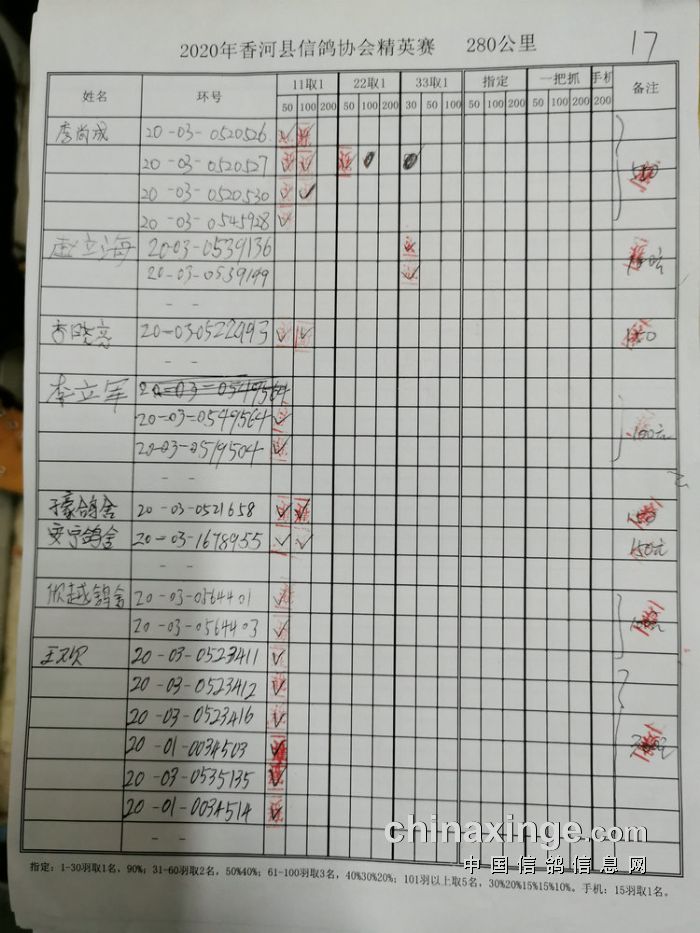 2020年香河县信鸽协会精英赛 280公里
17
姓名 环号 11取1 22取1 33取1 指定 一把抓 手机 备注
50 100 200 50 100 200 30 50 100 50 100 200 50 100 200 200
李尚成 20-03-0520526
20-03-0520527
20-03-0520530
20-03-0545928
赵立海 20-03-0539136
20-03-0539199
- -
李晓亮 20-03-0522993
- -
李立军 20-03-0549564
20-03-0549564 100元
20-03-0519504
- -
20-03-0521658
安宁鸽舍 20-03-1678955 150元
- -
20-03-0564401
20-03-0564403
20-03-0523411
20-03-0523412
20-03-0523416
20-01-0034503
20-03-0535135
20-01-0034514
- -
指定：1-30羽取1名，90%；31-60羽取2名，50%40%；61-100羽取3名，40%30%20%；101羽以上取5名，30%20%15%15%10%。手机：15羽取1名。
chinaxinge.com
中国信鸽信息网